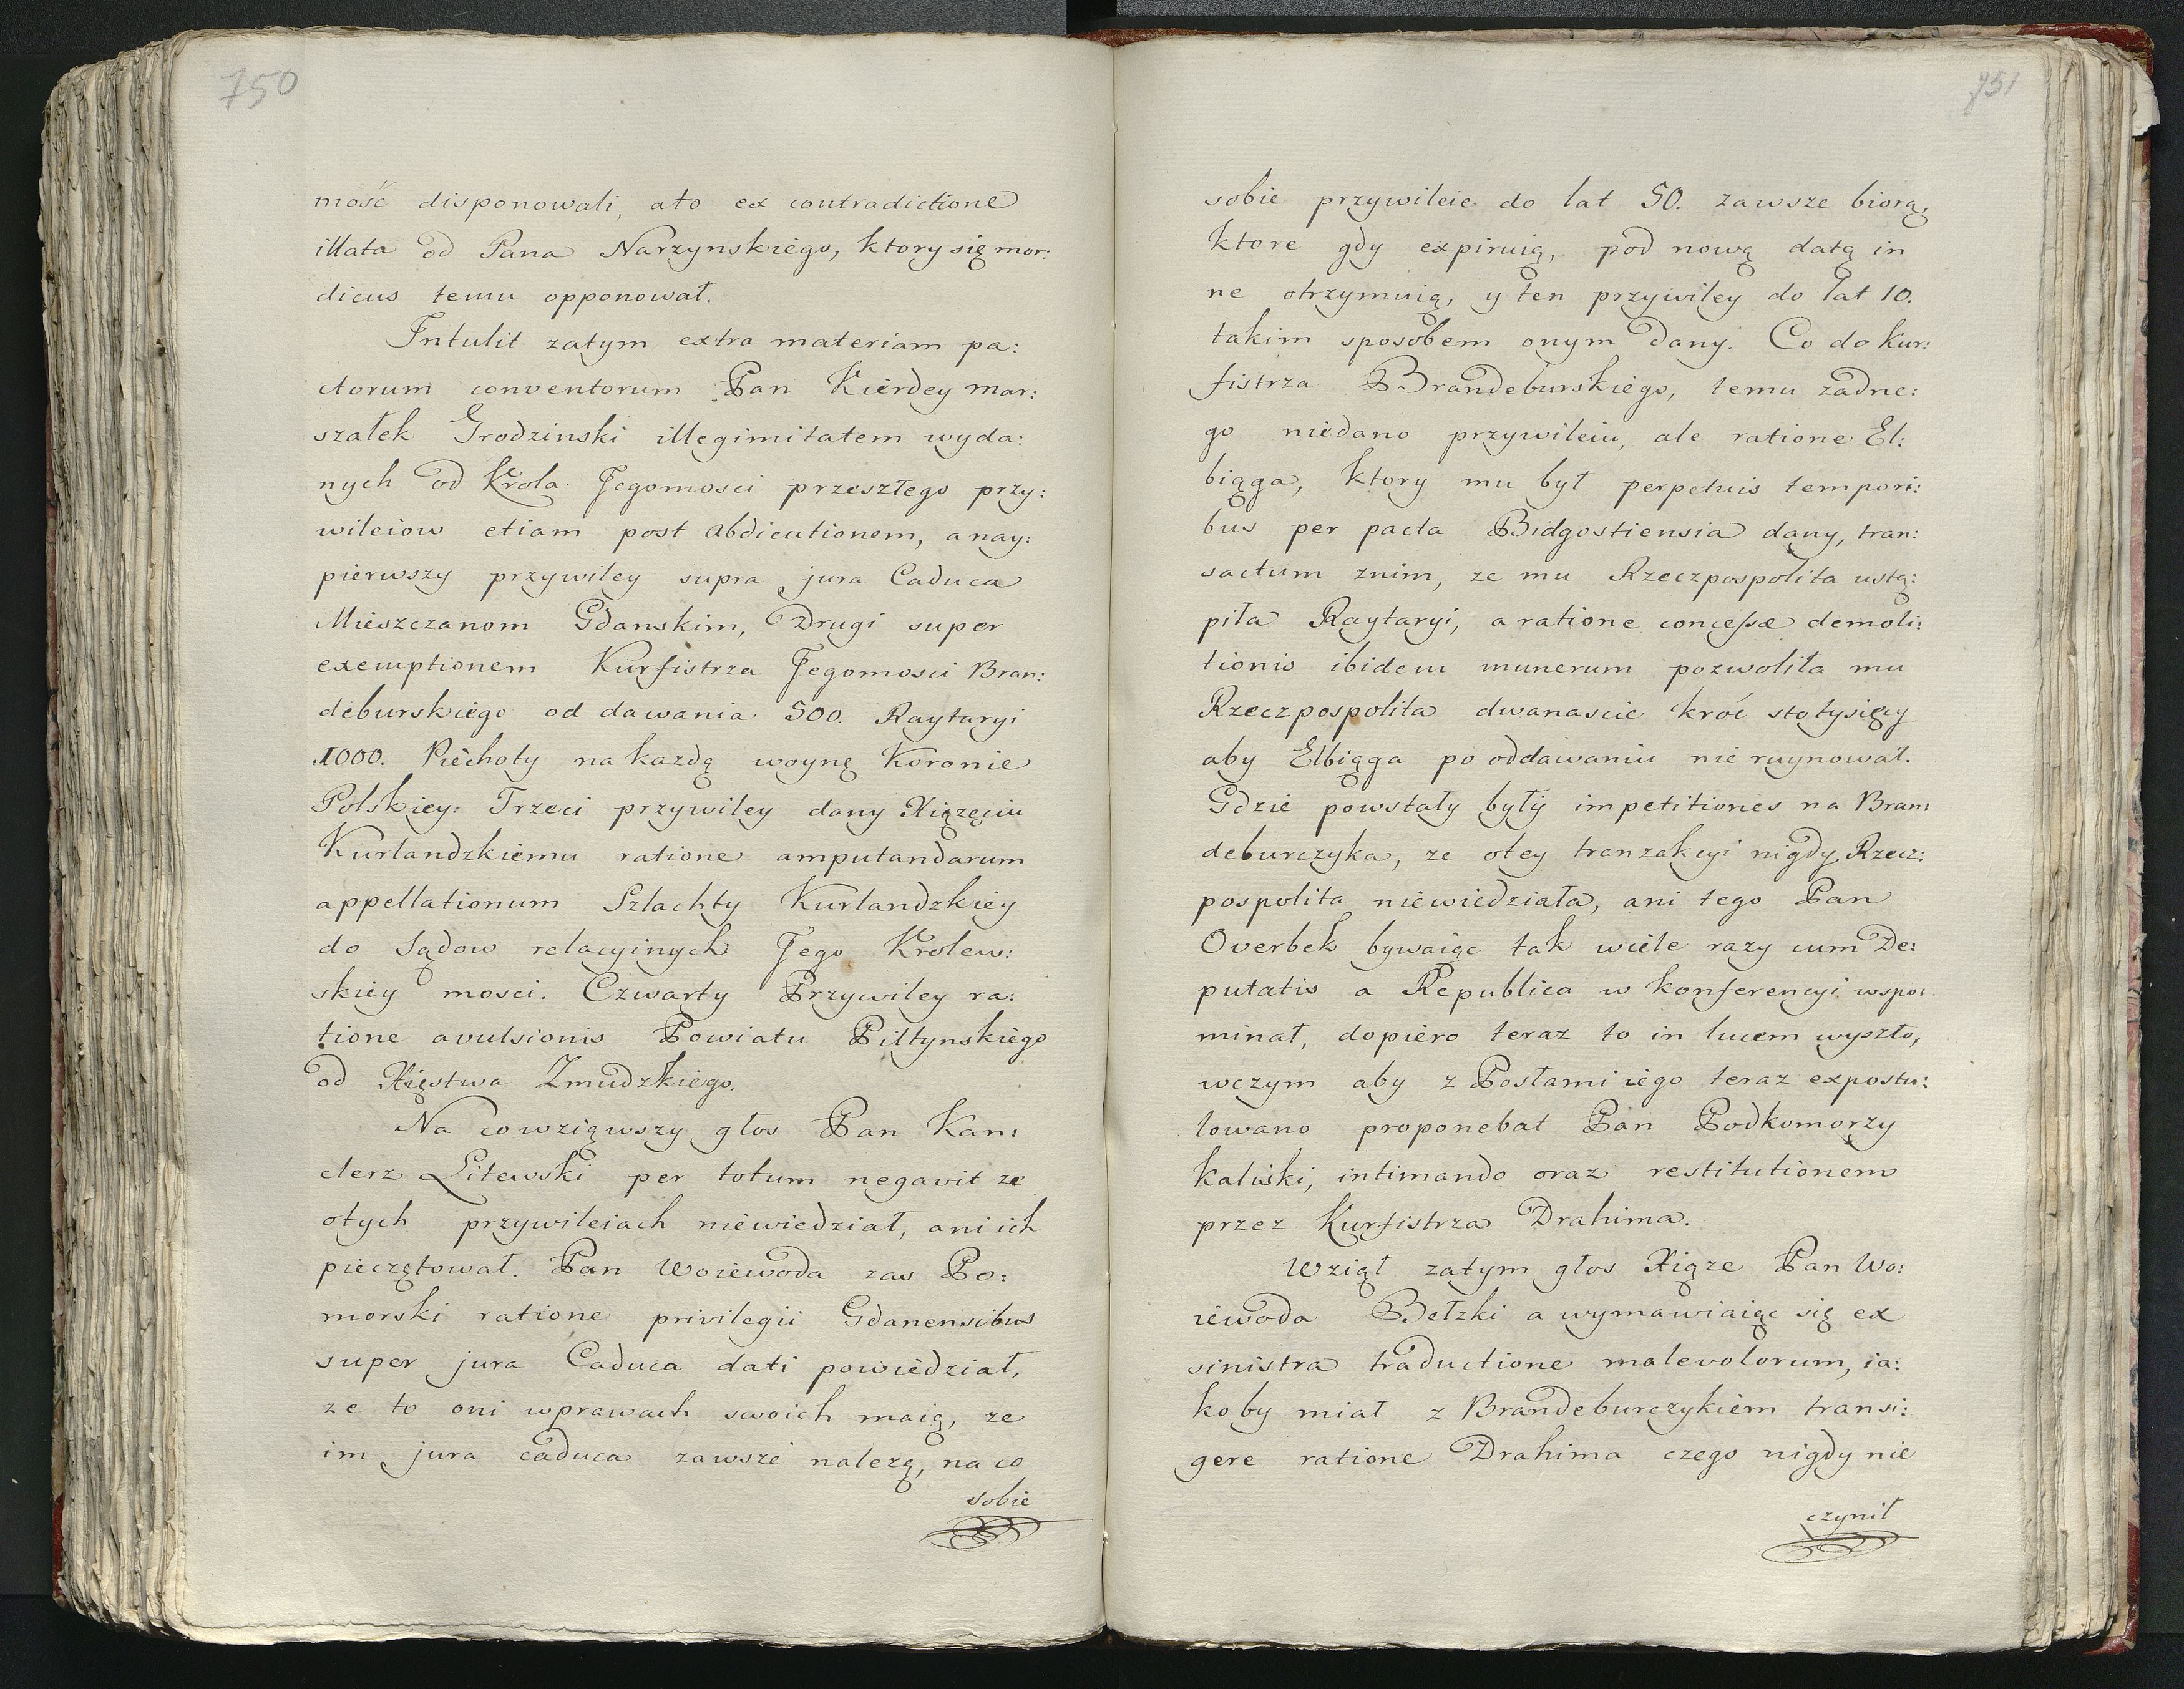 750
mość disponowali, ato ex contradictione
illata od Pana Narzynskiego, ktory się mor:
dicus temu opponował.
Intulit zatym extra materiam pa:
ctorum conventorum Pan Kierdey mar:
szałek Grodzinski illegimitatem wyda:
nych od Krola Jegomosci przeszłego przy:
wileiow etiam post abdicationem, a nay:
pierwszy przywiley supra jura Caduca
Mieszczanom Gdanskim, Drugi super
exemptionem Kurfistrza Jegomosci Bran:
deburskiego od dawania 500. Raytaryi
1000. Piechoty na kazdą woynę Koronie
Polskiey: Trzeci przywiley dany Xiązęciu
Kurlandzkiemu ratione amputandarum
appellationum Szlachty Kurlandzkiey
do Sądow relacyinych Jego Krolew:
skiey mosci. Czwarty Przywiley ra:
tione avulsionis Powiatu Piltynskiego
od Xięstwa Zmudzkiego.
Na cowziąwszy głos Pan Kan:
clerz Litewski per totum negavit ze
otych przywileiach niewiedział, ani ich
pieczętował. Pan Woiewoda zas Po:
morski ratione privilegii Gdanensibus
super jura Caduca dati powiedział,
ze to oni wprawach swoich maią, ze
im jura caduca zawsze nalezą, na co
sobie
751
sobie przywileie do lat 50. zawsze biorą,
ktore gdy expiruią, pod nową datą in
ne otrzymuią, y ten przywiley do lat 10.
takim sposobem onym dany. Co do kur:
fistrza Brandeburskiego, temu zadne:
go niedano przywileiu, ale ratione El:
biąga, ktory mu był perpetuis tempori:
bus per pacta Bidgostiensia dany, tran:
sactum znim, ze mu Rzeczpospolita ustą:
piła Raytaryi, a ratione concessæ demoli:
tionis ibidem munerum pozwoliła mu
Rzeczpospolita dwanascie kroć stotysięcy
aby Elbiąga po oddawaniu nie ruynował.
Gdzie powstały były impetitiones na Bran:
deburczyka, ze otey tranzakcyi nigdy Rzecz:
pospolita niewiedziała, ani tego Pan
Overbek bywaiąc tak wiele razy cum De:
putatis a Republica w konferencyi wspo:
minał, dopiero teraz to in lucem wyszło,
wczym aby z Posłami iego teraz expostu:
lowano proponebat Pan Podkomorzy
kaliski, intimando oraz restitutionem
przez Kurfistrza Drahima.
Wziął zatym głos Xiąze Pan Wo:
iewoda Bełzki a wymawiaiąc się ex
sinistra traductione malevolorum, ia:
koby miał z Brandeburczykiem transi:
gere ratione Drahima czego nigdy nie
czynił